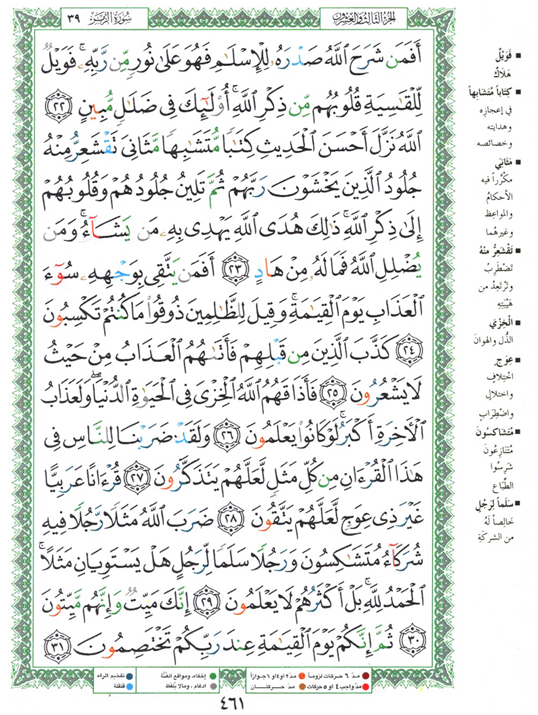 الجزء الثالث والعشرون
سورة الزمر
٣٩
أَفَمَن شَرَحَ ٱللَّهُ صَدْرَهُۥ لِلْإِسْلَٰمِ فَهُوَ عَلَىٰ نُورٍ مِّن رَّبِّهِۦ ۚ فَوَيْلٌ
لِّلْقَٰسِيَةِ قُلُوبُهُم مِّن ذِكْرِ ٱللَّهِ ۚ أُو۟لَٰٓئِكَ فِى ضَلَٰلٍ مُّبِينٍ ﴿٢٢﴾
ٱللَّهُ نَزَّلَ أَحْسَنَ ٱلْحَدِيثِ كِتَٰبًا مُّتَشَٰبِهًا مَّثَانِىَ تَقْشَعِرُّ مِنْهُ
جُلُودُ ٱلَّذِينَ يَخْشَوْنَ رَبَّهُمْ ثُمَّ تَلِينُ جُلُودُهُمْ وَقُلُوبُهُمْ
إِلَىٰ ذِكْرِ ٱللَّهِ ۚ ذَٰلِكَ هُدَى ٱللَّهِ يَهْدِى بِهِۦ مَن يَشَآءُ ۚ وَمَن
يُضْلِلِ ٱللَّهُ فَمَا لَهُۥ مِنْ هَادٍ ﴿٢٣﴾ أَفَمَن يَتَّقِى بِوَجْهِهِۦ سُوٓءَ
ٱلْعَذَابِ يَوْمَ ٱلْقِيَٰمَةِ ۚ وَقِيلَ لِلظَّٰلِمِينَ ذُوقُوا۟ مَا كُنتُمْ تَكْسِبُونَ
﴿٢٤﴾ كَذَّبَ ٱلَّذِينَ مِن قَبْلِهِمْ فَأَتَىٰهُمُ ٱلْعَذَابُ مِنْ حَيْثُ
لَا يَشْعُرُونَ ﴿٢٥﴾ فَأَذَاقَهُمُ ٱللَّهُ ٱلْخِزْىَ فِى ٱلْحَيَوٰةِ ٱلدُّنْيَا ۖ وَلَعَذَابُ
ٱلْءَاخِرَةِ أَكْبَرُ ۚ لَوْ كَانُوا۟ يَعْلَمُونَ ﴿٢٦﴾ وَلَقَدْ ضَرَبْنَا لِلنَّاسِ فِى
هَٰذَا ٱلْقُرْءَانِ مِن كُلِّ مَثَلٍ لَّعَلَّهُمْ يَتَذَكَّرُونَ ﴿٢٧﴾ قُرْءَانًا عَرَبِيًّا
غَيْرَ ذِى عِوَجٍ لَّعَلَّهُمْ يَتَّقُونَ ﴿٢٨﴾ ضَرَبَ ٱللَّهُ مَثَلًا رَّجُلًا فِيهِ
شُرَكَآءُ مُتَشَٰكِسُونَ وَرَجُلًا سَلَمًا لِّرَجُلٍ هَلْ يَسْتَوِيَانِ مَثَلًا ۚ
ٱلْحَمْدُ لِلَّهِ ۚ بَلْ أَكْثَرُهُمْ لَا يَعْلَمُونَ ﴿٢٩﴾ إِنَّكَ مَيِّتٌ وَإِنَّهُم مَّيِّتُونَ
﴿٣٠﴾ ثُمَّ إِنَّكُمْ يَوْمَ ٱلْقِيَٰمَةِ عِندَ رَبِّكُمْ تَخْتَصِمُونَ ﴿٣١﴾
■ فَوَيْلٌ
هَلَاكٌ
■ كِتَاباً مُتَشَابِهاً
في إعجازه
وهدايته
وخصائصه
■ مَثَانِيَ
مكرَّراً فيه
الأحكامُ
والمواعِظُ
وغيرهُما
■ تَقْشَعِرُّ مِنْهُ
تَضْطَرِبُ
وتَرْتَعِدُ من
هَيْبَتِهِ
■ الْخِزْيَ
الذُّل والهوانَ
■ عِوَجٍ
اختِلافٍ
واختلالٍ
واضْطِرابٍ
■ مُتَشَاكِسُونَ
مُتَنَازِعُونَ
شَرِسُوا
الطِّبَاعِ
■ سَلَماً لِرَجُلٍ
خَالِصاً لَهُ
من الشركةِ
مدّ ٦ حركات لزوماً ● مدّ ٢ أو ٤ أو ٦ جوازاً
مدّ واجب ٤ أو ٥ حركات ● مدّ حركتان
إخفاء، ومواقع الغُنَّة
إدغام، وما لا يُلفظ
تفخيم الراء
قلقلة
٤٦١